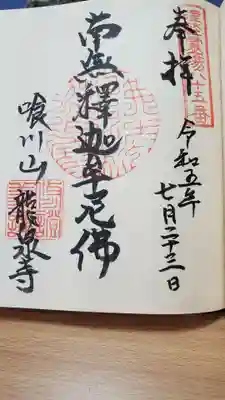 奉拝
令和五年
七月二十三日
南無釋迦牟尼佛
喰川山
龍泉寺